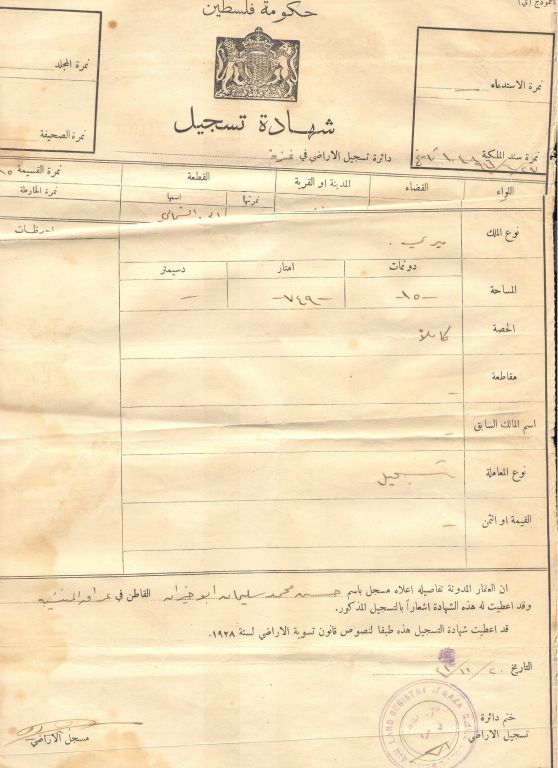 نموذج (ي)
حكومة فلسطين
نمرة المجلد
نمرة الاستدعاء
شهادة تسجيل
نمرة الصحيفة
دائرة تسجيل الاراضي في غزة
نمرة سند الملكية
اللواء
القضاء
المدينة او القرية
القطعة
نمرتها
اسمها
نمرة القسيمة
نمرة الخارطة
نوع الملك
ميري.
دونمات
امتار
دسيمتر
المساحة
-١٥-
-٧٤٩-
-
الحصة
كاملاً
مقاطعة
-
اسم المالك السابق
-
نوع المعاملة
تسجيل
القيمة او الثمن
-
ان العقار المدونة تفاصيله اعلاه مسجل باسم حسن محمد سليمان ابو خيران القاطن في عراق المنشية
وقد اعطيت له هذه الشهادة اشعاراً بالتسجيل المذكور.
قد اعطيت شهادة التسجيل هذه طبقا لنصوص قانون تسوية الاراضي لسنة ١٩٢٨.
التاريخ
ختم دائرة
تسجيل الاراضي
LAND REGISTRY OF GAZA
مسجل الاراضي